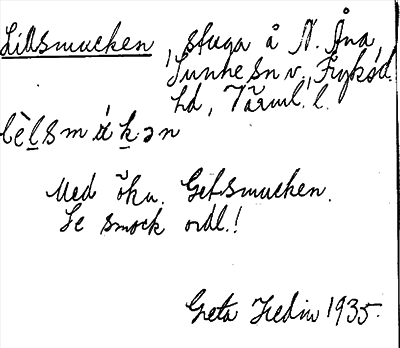 Lillsmucken, stuga å N. Åna,
Sunne sn v., Fryksd.
hd, Värml. l.
lèl̠smúk̠ən
Med ökn. Getsmucken.
Se smock ordl.!
Greta Hedin 1935.